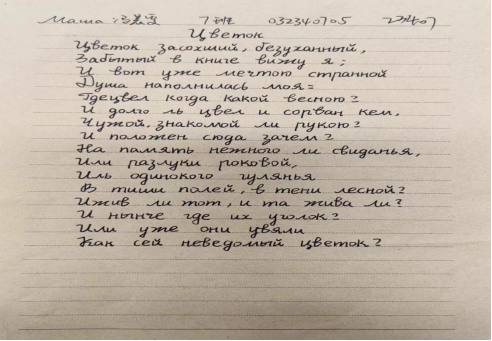 Маша: 7班 032340705
Цветок
Цветок засохший, безуханный,
Забытый в книге вижу я;
И вот уже мечтою странной
Душа наполнилась моя:
Где цвел когда какой весною?
И долго ль цвел и сорван кем,
Чужой, знакомой ли рукою?
И положен сюда зачем?
На память нежного ли свиданья,
Или разлуки роковой,
Иль одинокого гулянья
В тиши полей, в тени лесной?
И жив ли тот, и та жива ли?
И нынче где их уголок?
Или уже они увяли
Как сей неведомый цветок?